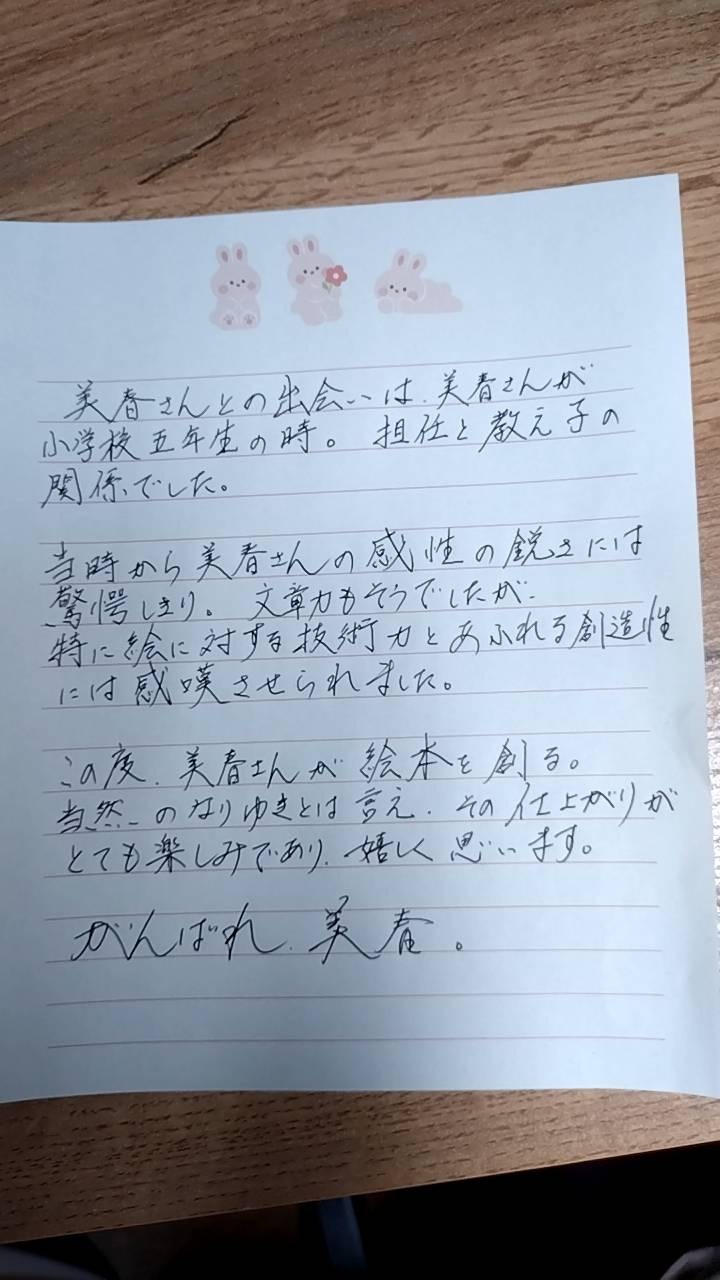 美春さんとの出会いは、美春さんが
小学校五年生の時。担任と教え子の
関係でした。
当時から美春さんの感性の鋭さには
驚愕しきり。文章力もそうでしたが、
特に絵に対する技術力とあふれる創造性
には感嘆させられました。
この度、美春さんが絵本を創る。
当然のなりゆきとは言え、その仕上がりが
とても楽しみであり、嬉しく思います。
がんばれ、美春。